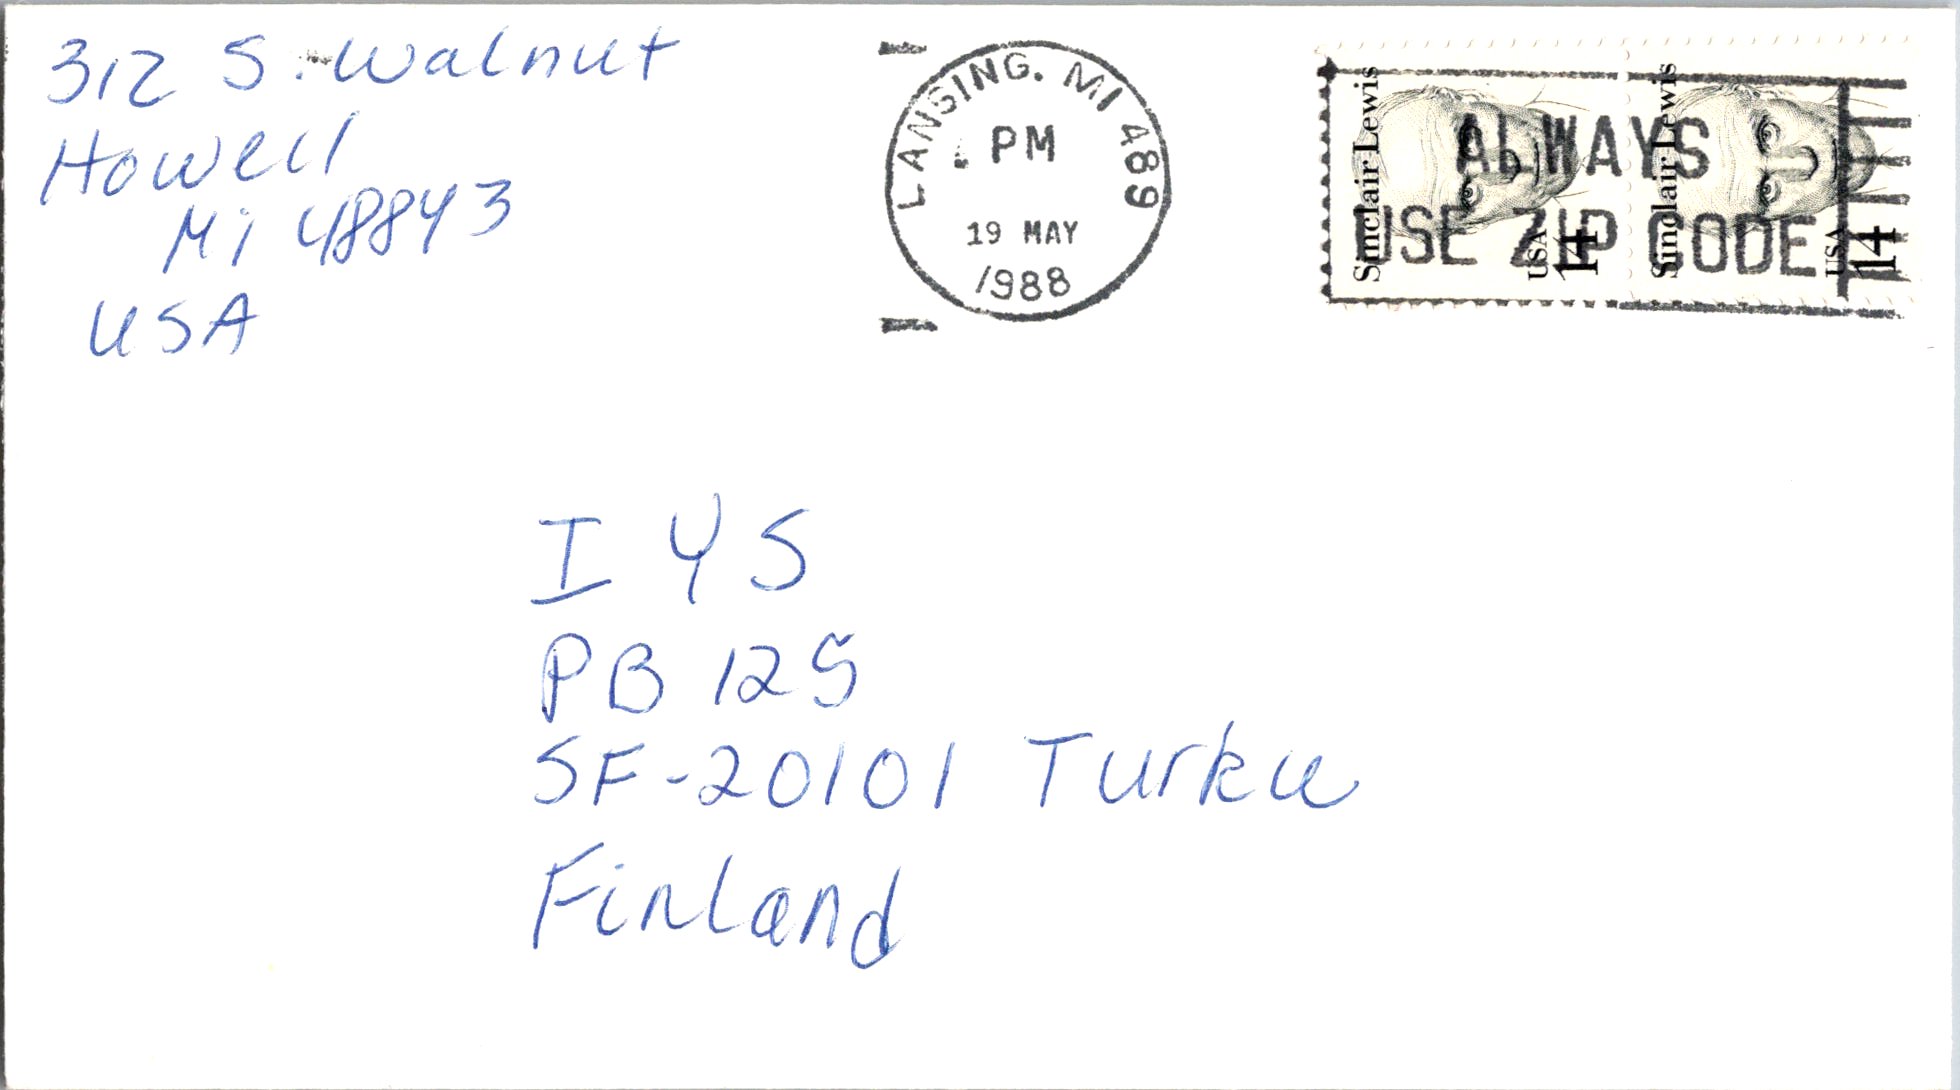 312 S. Walnut
Howell
MI 48843
USA
LANSING. MI 489
PM
19 MAY
1988
ALWAYS
USE ZIP CODE
Sinclair Lewis
USA
14
Sinclair Lewis
USA
14
I Y S
PB 125
SF-20101 Turku
Finland